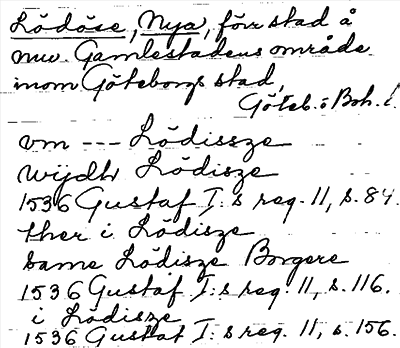 Lödöse, Nya, förr stad å
nuv. Gamlestadens område
inom Göteborgs stad,
Göteb. o. Boh. l.
vm --- Lödissze
wijdh Lödisze
1536 Gustaf I:s reg. 11, s. 84.
ther i Lödisze
same Lödisze Borgere
1536 Gustaf I:s reg. 11, s. 116.
i Lödisze
1536 Gustaf I:s reg. 11, s. 156.